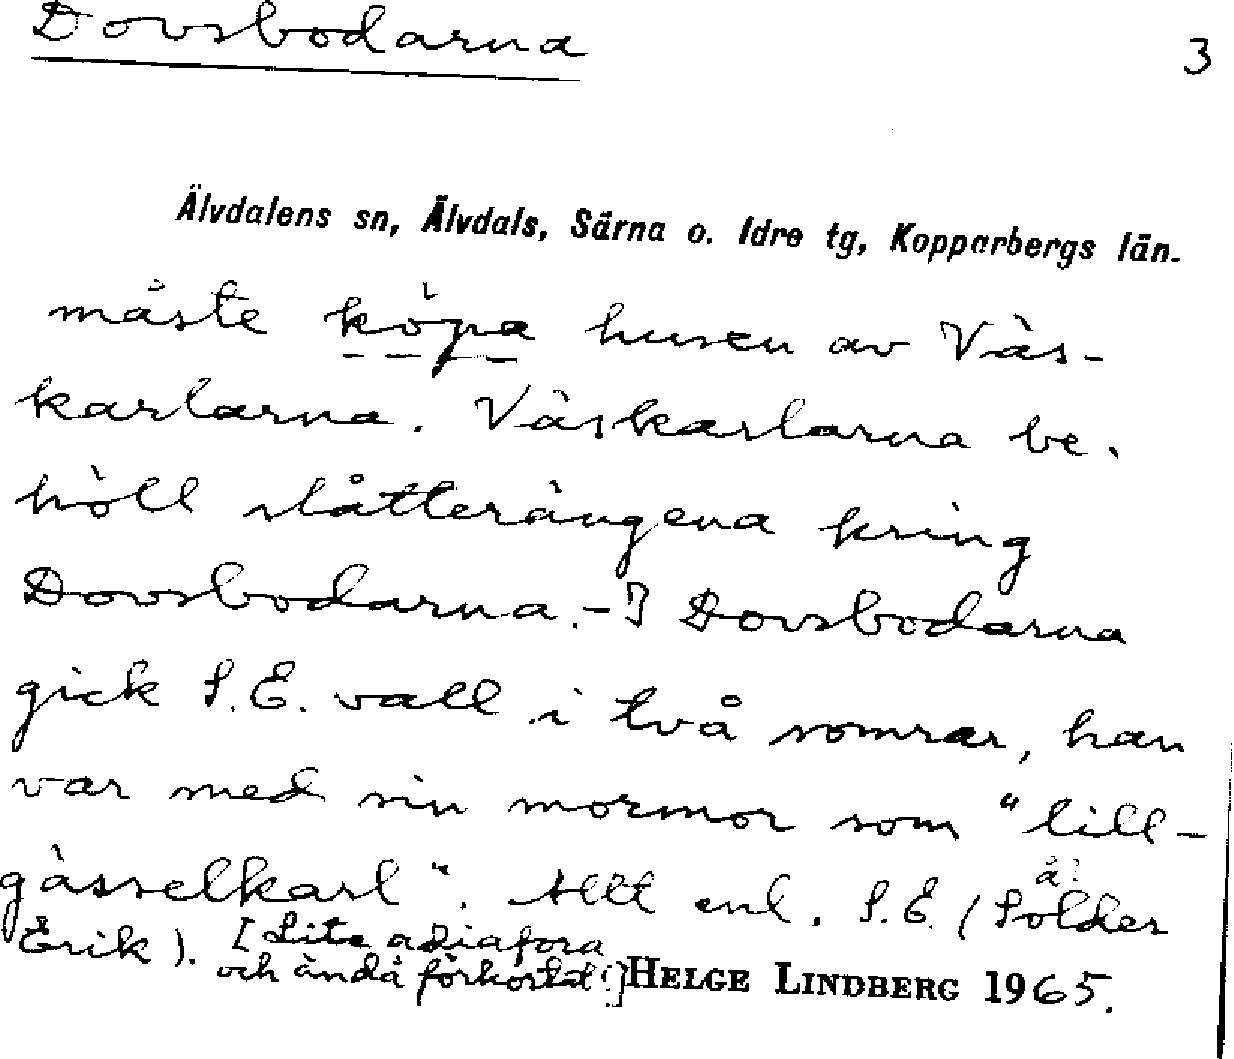 Dovsbodarna 3
Älvdalens sn, Älvdals, Särna o. Idre tg, Kopparbergs län.
måste köpa husen av Väs-
karlarna. Väskarlarna be-
höll slåtterängena kring
Dovsbodarna. - I Dovsbodarna
gick S.E. vall i två somrar, han
var med sin mormor som "lill-
gässelkarl". Allt enl. S.E. (Solder
Erik). [Lite adiafora
och ändå förkortat!] HELGE LINDBERG 1965.